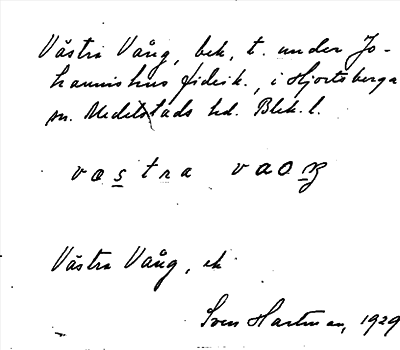 Västra Vång, bek, t. under Jo-
hannishus fideik., i Hjortsberga
sn. Medelstads hd. Blek. l.
væstra vaoŋ
Västra Vång, ek
Sven Hartman, 1929